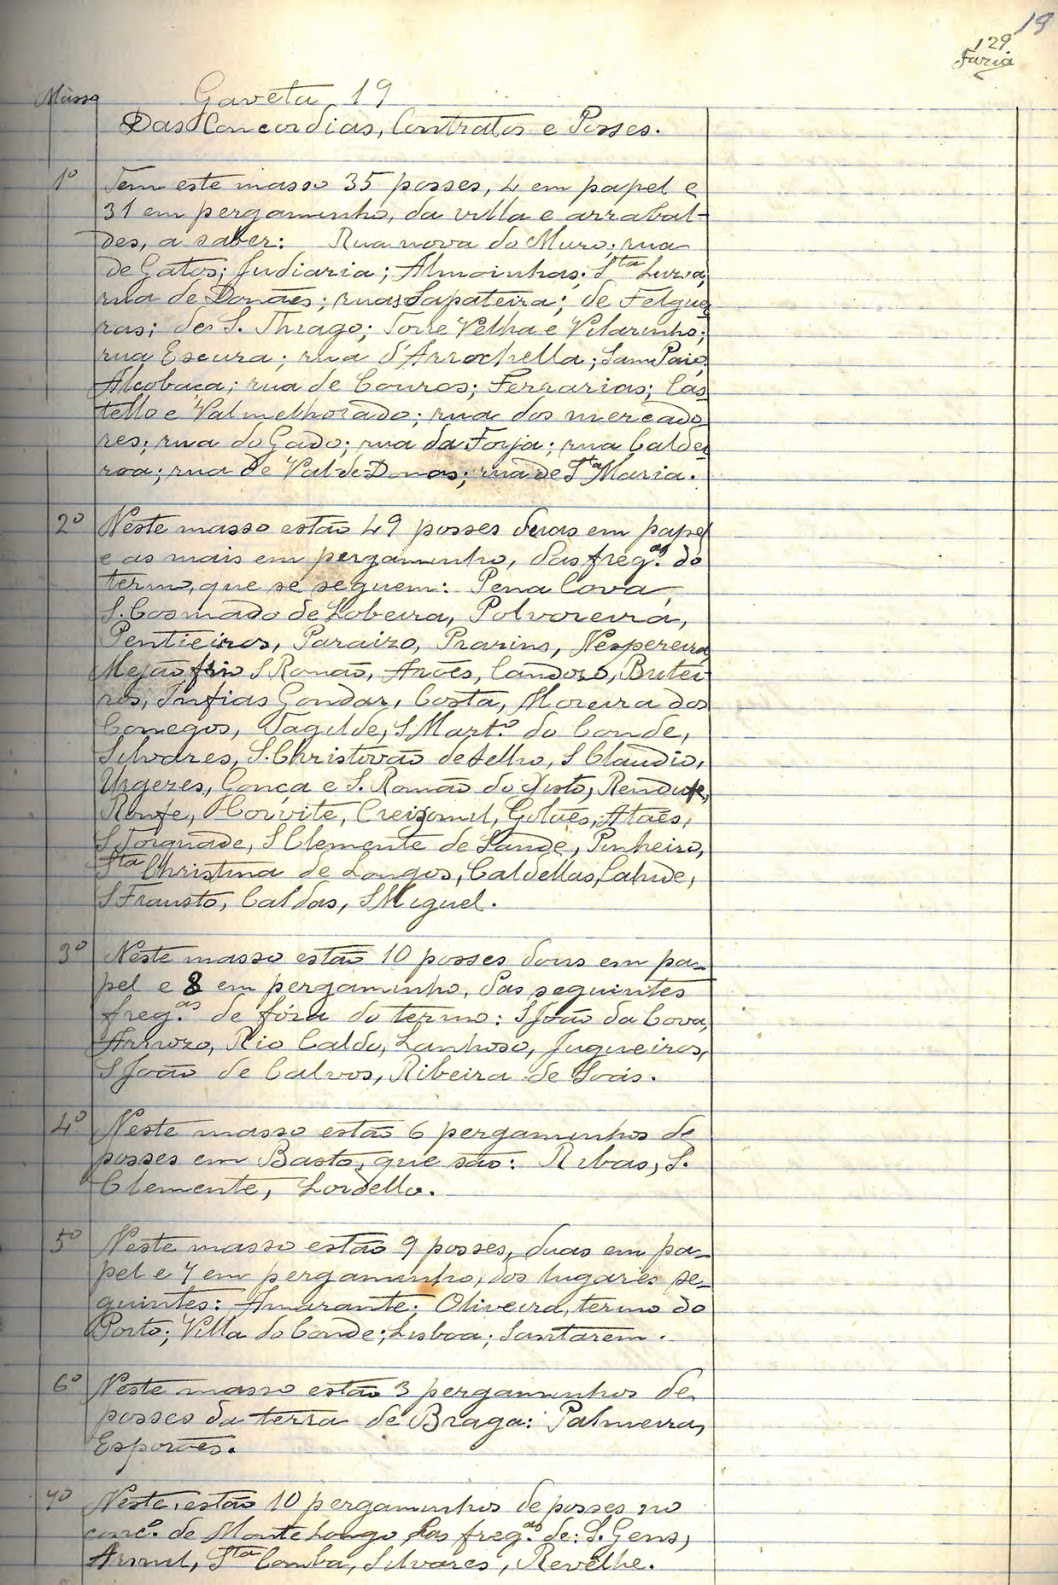 19
129
Faria
Masso
Gaveta 19
Das Concordias, Contratos e Posses.
1º Tem este masso 35 posses, 4 em papel e
31 em pergaminho, da villa e arrabal-
des, a saber: Rua nova do Muro; rua
de Gatos; Judiaria; Almoinhas; Sta Luzia;
rua de Donães; rua Sapateira; de Felguei
ras; de S. Thiago; Torre Velha e Vilarinho;
rua Escura; rua d'Arrochella; Sam Paio;
Alcobaça; rua de Couros; Ferrarias; Cas
tello e Valmelhorado; rua dos mercado
res; rua do Gado; rua da Forja; rua Caldei
roa; rua de Val de Donas; rua de Sta Maria.
2º Neste masso estão 49 posses duas em papel
e as mais em pergaminho, das freg.as do
termo, que se seguem: Pena Cova,
S. Cosmado de Lobeira, Polvoreira,
Pentieiros, Paraizo, Prazins, Nespereira
Mejão frio S Romão, Arões, Candoso, Butei
ros, Infias Gondar, Costa, Moreira dos
Conegos, Tagilde, S Mart.º do Conde,
Silvares, S. Christovão de Selho, S Claudio,
Urgezes, Gonça e S. Romão do Disto, Rendufe,
Ronfe, Corvite, Creixomil, Golães, Ataes,
S Torquade, S Clemente de Sande, Pinheiro,
Sta Christina de Longos, Caldellas, Calvde,
S Frausto, Caldas, S Miguel.
3º Neste masso estão 10 posses dous em pa-
pel e 8 em pergaminho, das seguintes
freg.as de fóra do termo: S João da Cova,
Arnozo, Rio Caldo, Lanhoso, Jugueiros,
S João de Calvos, Ribeira de Soás.
4º Neste masso estão 6 pergaminhos de
posses em Basto, que são: Ribas, S.
Clemente, Lordello.
5º Neste masso estão 9 posses, duas em pa-
pel e 7 em pergaminho, dos lugares se-
guintes: Amarante; Oliveira, termo do
Porto; Villa do Conde; Lisboa; Santarem.
6º Neste masso estão 3 pergaminhos de
posses da terra de Braga: Palmeira,
Esporões.
7º Neste, estão 10 pergaminhos de posses no
conc.º de Monte Longo das freg.as de: S. Gens,
Armil, Sta Comba, Silvares, Revelhe.